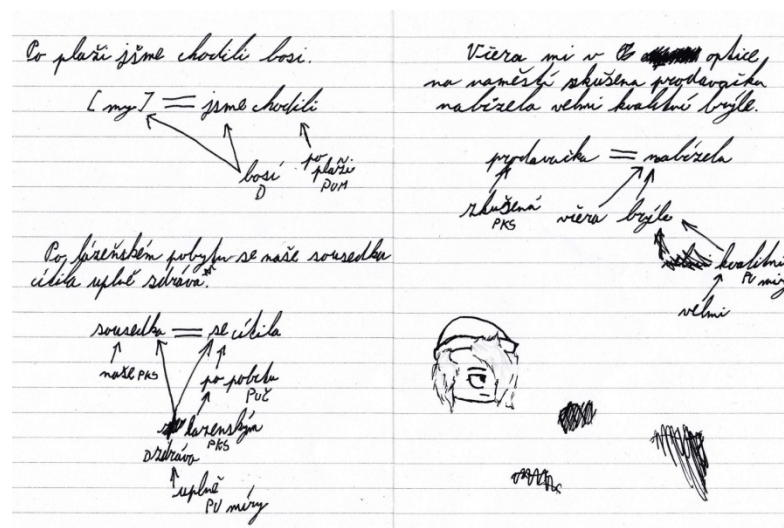 Po plaži jsme chodili bosi.
[my] = jsme chodili
bosí
D
po
plaži
PUM
Po lázeňském pobytu se naše sousedka
cítila uplně zdráva.
sousedka = se cítila
naše PKS
po pobytu
PUČ
lazenským
PKS
D zdráva
uplně
PU míry
Včera mi v optice
na naměstí zkušena prodavačka
nabízela velmi kvalitní brýle.
prodavačka = nabízela
zkušená
PKS
včera brýle
kvalitní
PU míry
velmi